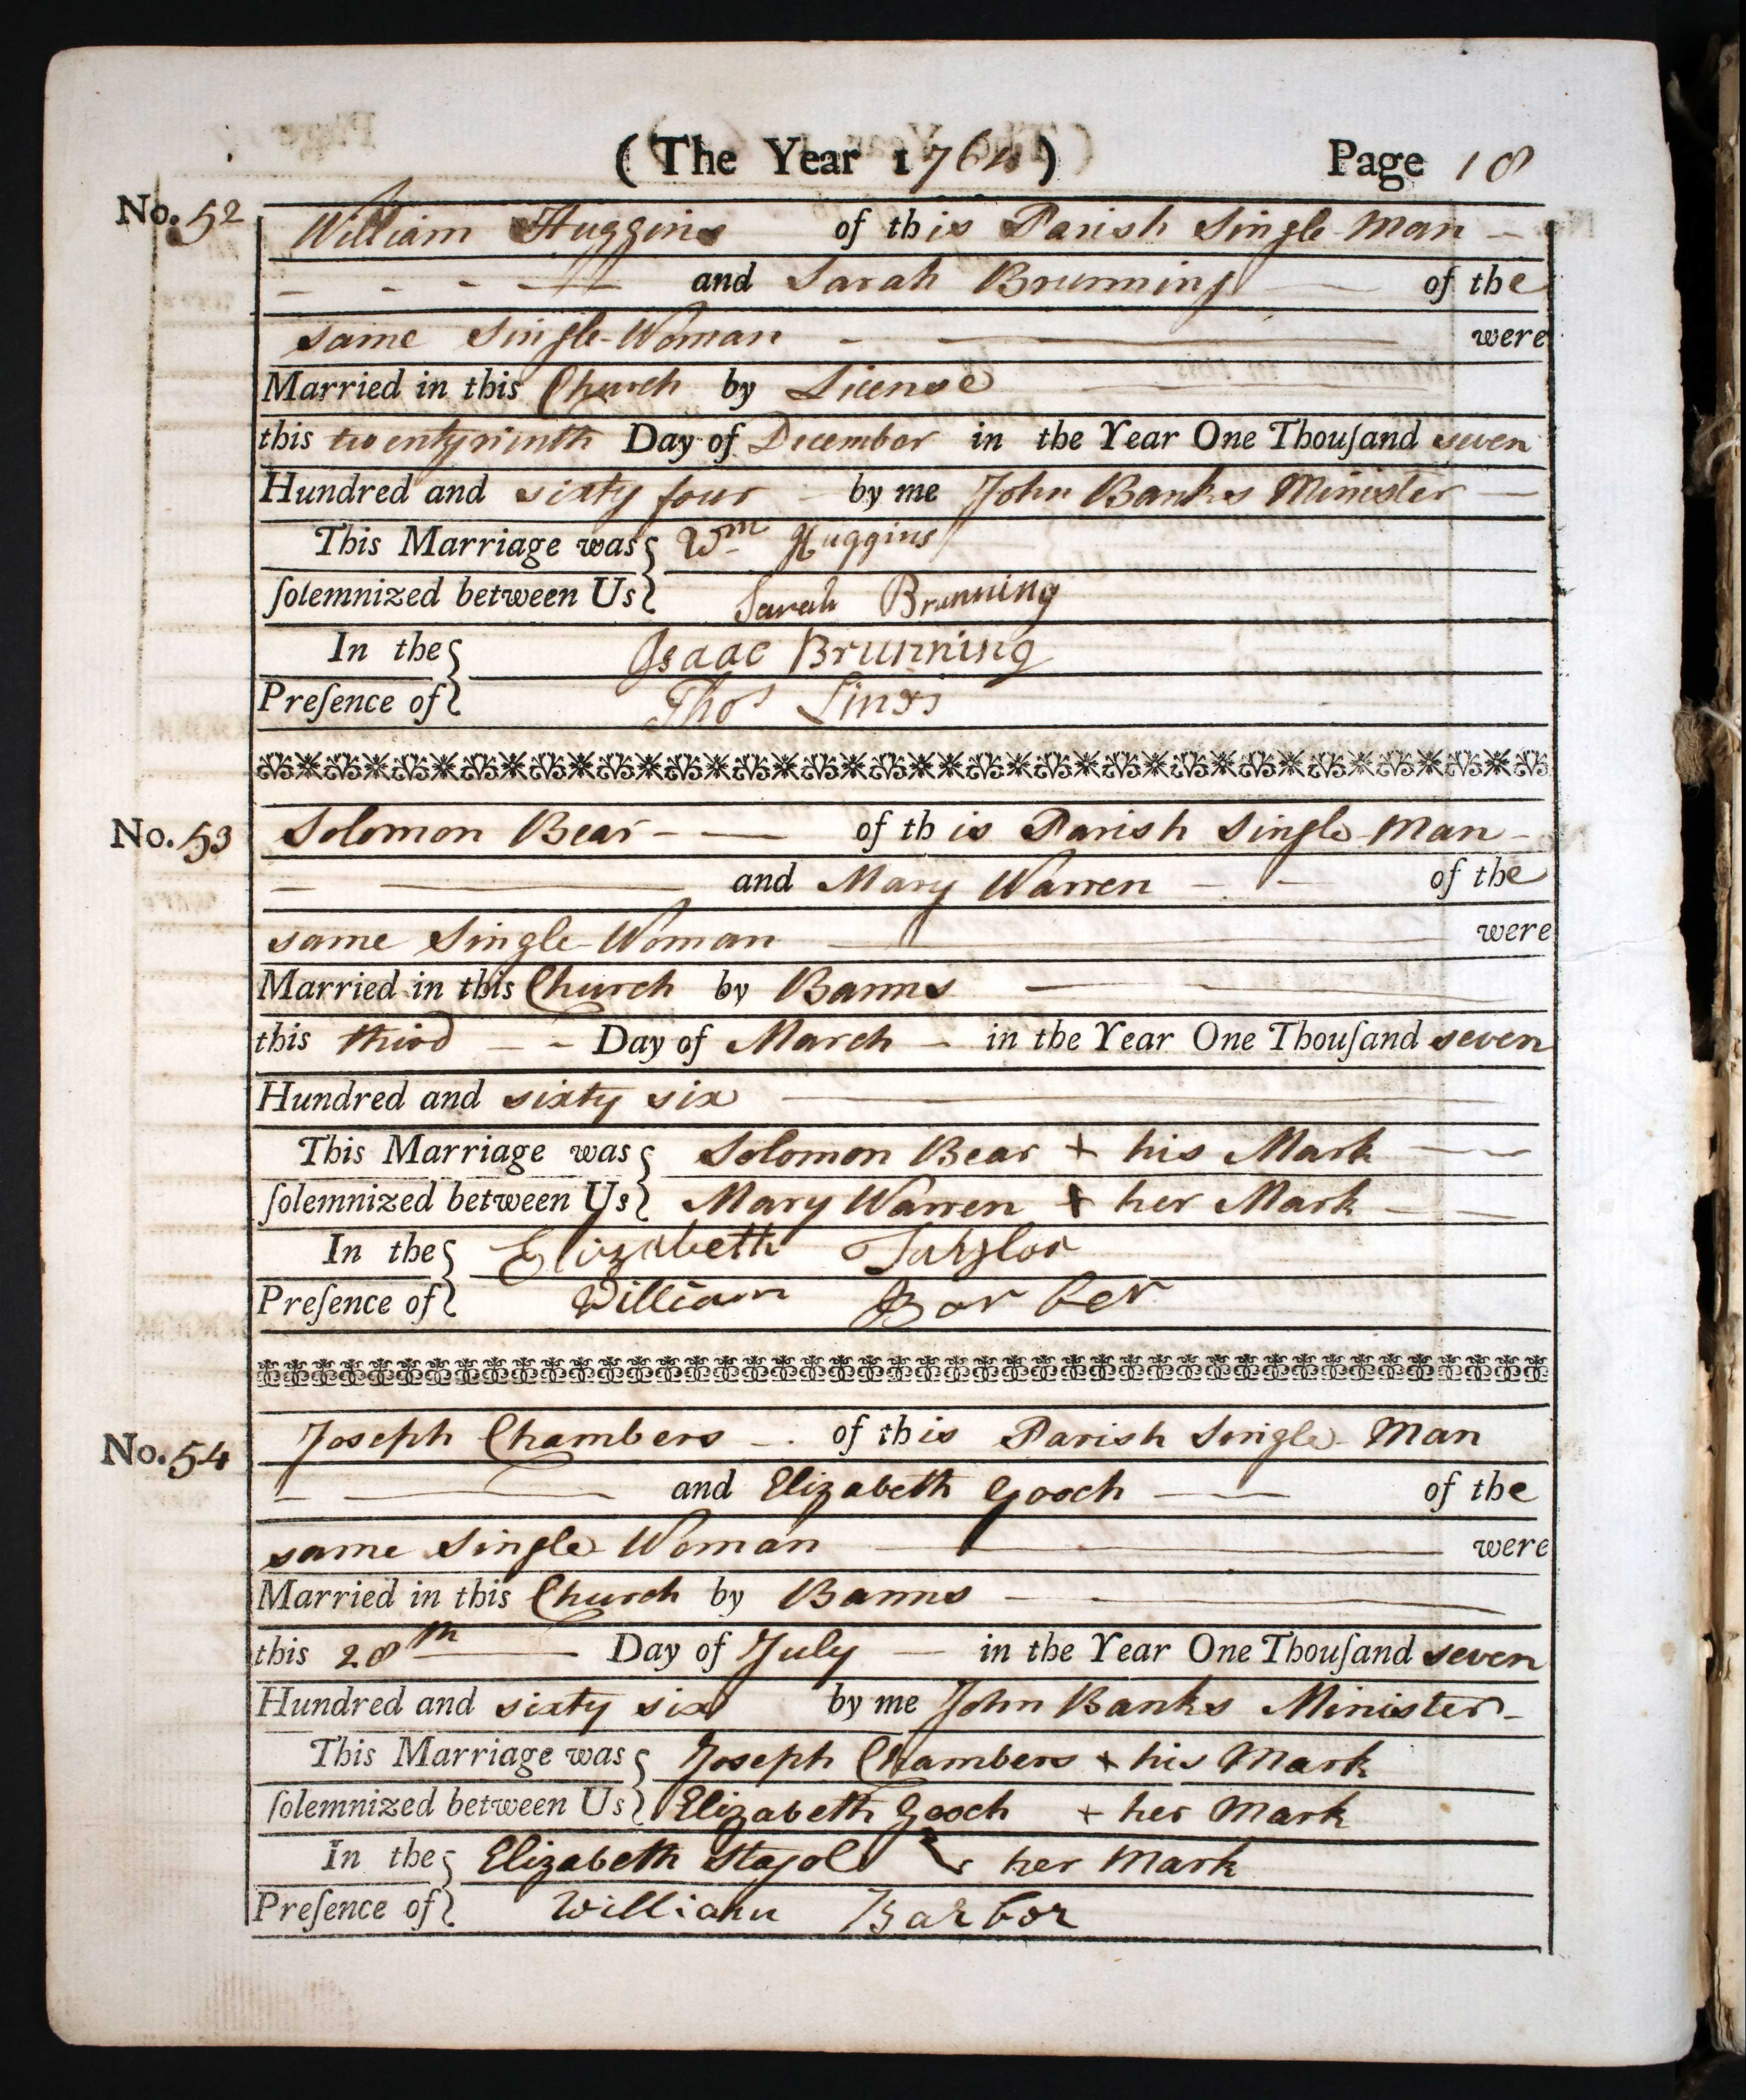 (The Year 1764) Page 18
No. 52
William Huggins of this Parish Single Man
and Sarah Brunning of the
same Single-Woman were
Married in this Church by License
this twenty ninth Day of December in the Year One Thouſand seven
Hundred and sixty four by me John Banks Minister
This Marriage was Wm Huggins
ſolemnized between Us Sarah Brunning
In the Isaac Brunning
Preſence of Thos
No. 53
Solomon Bear of this Parish Single Man
and Mary Warren of the
same Single-Woman were
Married in this Church by Banns
this third Day of March in the Year One Thouſand seven
Hundred and sixty six
This Marriage was Solomon Bear + his Mark
ſolemnized between Us Mary Warren + her Mark
In the Elizabeth Tahylor
Preſence of William Barber
No. 54
Joseph Chambers of this Parish Single Man
and Elizabeth Gooch of the
same Single Woman were
Married in this Church by Banns
this 28th Day of July in the Year One Thouſand seven
Hundred and sixty six by me John Banks Minister
This Marriage was Joseph Chambers + his Mark
ſolemnized between Us Elizabeth Gooch + her Mark
In the Elizabeth her Mark
Preſence of William Barbor